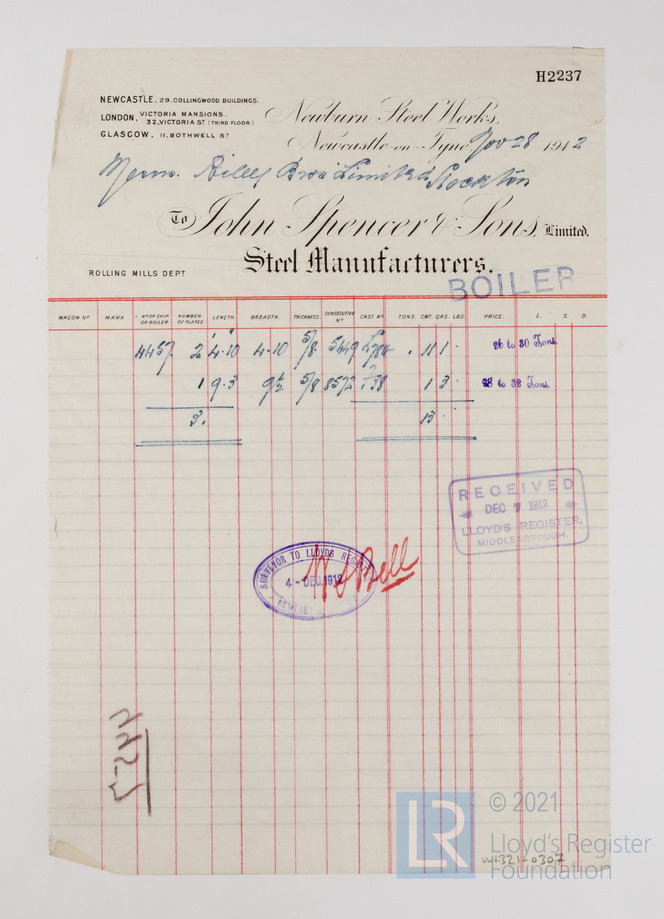 H2237
NEWCASTLE, 29, COLLINGWOOD BUILDINGS.
LONDON, VICTORIA MANSIONS,
32, VICTORIA ST (THIRD FLOOR)
GLASGOW, 11, BOTHWELL ST
Newburn Steel Works,
Newcastle-on-Tyne, Nov 28 1912
Messrs. Riley Bros Limited Stockton
To John Spencer & Sons, Limited.
Steel Manufacturers.
ROLLING MILLS DEPT
BOILER
WAGON No MARK No OF SHIP OR BOILER NUMBER OF PLATES LENGTH BREADTH THICKNESS CONSECUTIVE No CAST No TONS. CWT. QRS. LBS. PRICE. L. S. D.
4457 2 4·10 4·10 5/8 5449 . 11 1 · 26 to 30 Tons.
1 9·3 9½ 5/8 8573 1 3 · 28 to 32 Tons.
3. 13
RECEIVED
DEC 7 1912
LLOYD'S REGISTER,
MIDDLESBROUGH.
SURVEYOR TO LLOYDS REGISTER
4 - DEC. 1912
Bell
5244
© 2021
LR
Lloyd's Register
Foundation
W1321-0307